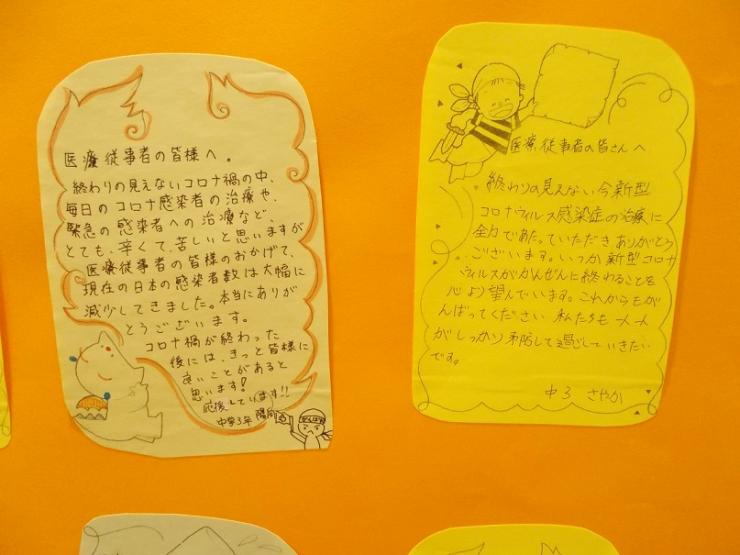 医療従事者の皆様へ。
終わりの見えないコロナ禍の中、
毎日のコロナ感染者の治療や、
緊急の感染者への治療など、
とても、辛くて、苦しいと思いますが
医療従事者の皆様のおかげで、
現在の日本の感染者数は大幅に
減少してきました。本当にありが
とうございます。
コロナ禍が終わった
後には、きっと皆様に
良いことがあると
思います!
応援しています!!
中学3年
がんばれ
医療従事者の皆さんへ
終わりの見えない今新型
コロナウィルス感染症の治療に
全力であたっていただきありがとう
ございます。いつか新型コロナ
ウィルスがかんぜんに終わることを
心より望んでいます。これからもが
んばってください 私たちも一人一人
がしっかり予防して過していきたい
です。
中3 さやか